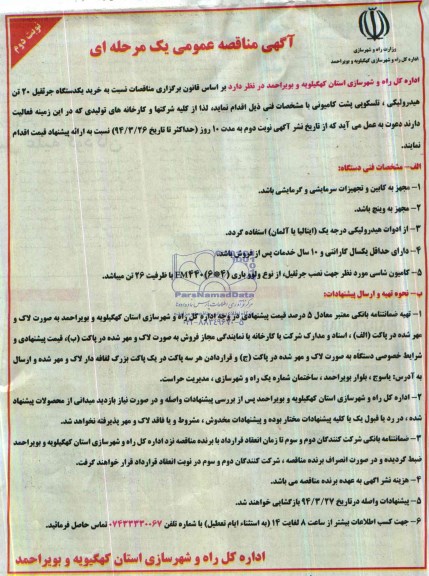 نوبت دوم
وزارت راه و شهرسازی
اداره کل راه و شهرسازی کهگیلویه و بویراحمد
آگهی مناقصه عمومی یک مرحله ای
اداره کل راه و شهرسازی استان کهگیلویه و بویراحمد در نظر دارد بر اساس قانون برگزاری مناقصات نسبت به خرید یکدستگاه جرثقیل ۲۰ تن
هیدرولیکی ، تلسکوپی پشت کامیونی با مشخصات فنی ذیل اقدام نماید، لذا از کلیه شرکتها و کارخانه های تولیدی که در این زمینه فعالیت
دارند دعوت به عمل می آید که از تاریخ نشر آگهی نوبت دوم به مدت ۱۰ روز (حداکثر تا تاریخ ۹۴/۳/۲۶) نسبت به ارائه پیشنهاد قیمت اقدام
نمایند.
الف- مشخصات فنی دستگاه:
۱- مجهز به کابین و تجهیزات سرمایشی و گرمایشی باشد.
۲- مجهز به وینچ باشد.
۳- از ادوات هیدرولیکی درجه یک (ایتالیا یا آلمان) استفاده گردد.
۴- دارای حداقل یکسال گارانتی و ۱۰ سال خدمات پس از فروش باشد.
۵- کامیون شاسی مورد نظر جهت نصب جرثقیل، از نوع ولوو باری FM۴۴۰ (۶*۴) با ظرفیت ۲۶ تن میباشد.
ParsNamadData
ب- نحوه تهیه و ارسال پیشنهادات:
۰۲۱-۸۸۳۴۹۶۷۰-۵
۱- تهیه ضمانتنامه بانکی معتبر معادل ۵ درصد قیمت پیشنهادی در وجه اداره کل راه و شهرسازی استان کهگیلویه و بویراحمد به صورت لاک و
مهر شده در پاکت (الف) ، اسناد و مدارک شرکت یا کارخانه یا نمایندگی مجاز فروش به صورت لاک و مهر شده در پاکت (ب)، قیمت پیشنهادی و
شرایط خصوصی دستگاه به صورت لاک و مهر شده در پاکت (ج) و قراردادن هر سه پاکت در یک پاکت بزرگ لفافه دار لاک و مهر شده و ارسال
به آدرس: یاسوج ، بلوار بویراحمد ، ساختمان شماره یک راه و شهرسازی ، مدیریت حراست.
۲- اداره کل راه و شهرسازی استان کهگیلویه و بویراحمد پس از بررسی پیشنهادات واصله و در صورت نیاز بازدید میدانی از محصولات پیشنهاد
شده ، در رد یا قبول یک یا کلیه پیشنهادات مختار بوده و پیشنهادات مخدوش ، مشروط و یا فاقد لاک و مهر پذیرفته نخواهد شد.
۳- ضمانتنامه بانکی شرکت کنندگان دوم و سوم تا زمان انعقاد قرارداد با برنده مناقصه نزد اداره کل راه و شهرسازی استان کهگیلویه و بویراحمد
ضبط گردیده و در صورت انصراف برنده مناقصه ، شرکت کنندگان دوم و سوم در نوبت انعقاد قرارداد قرار خواهند گرفت.
۴- هزینه نشر آگهی به عهده برنده مناقصه می باشد.
۵- پیشنهادات واصله در تاریخ ۹۴/۳/۲۷ بازگشایی خواهند شد.
۶- جهت کسب اطلاعات بیشتر از ساعت ۸ لغایت ۱۴ (به استثناء ایام تعطیل) با شماره تلفن ۰۷۴۳۳۳۳۰۰۶۷ تماس حاصل فرمائید.
اداره کل راه و شهرسازی استان کهگیلویه و بویراحمد